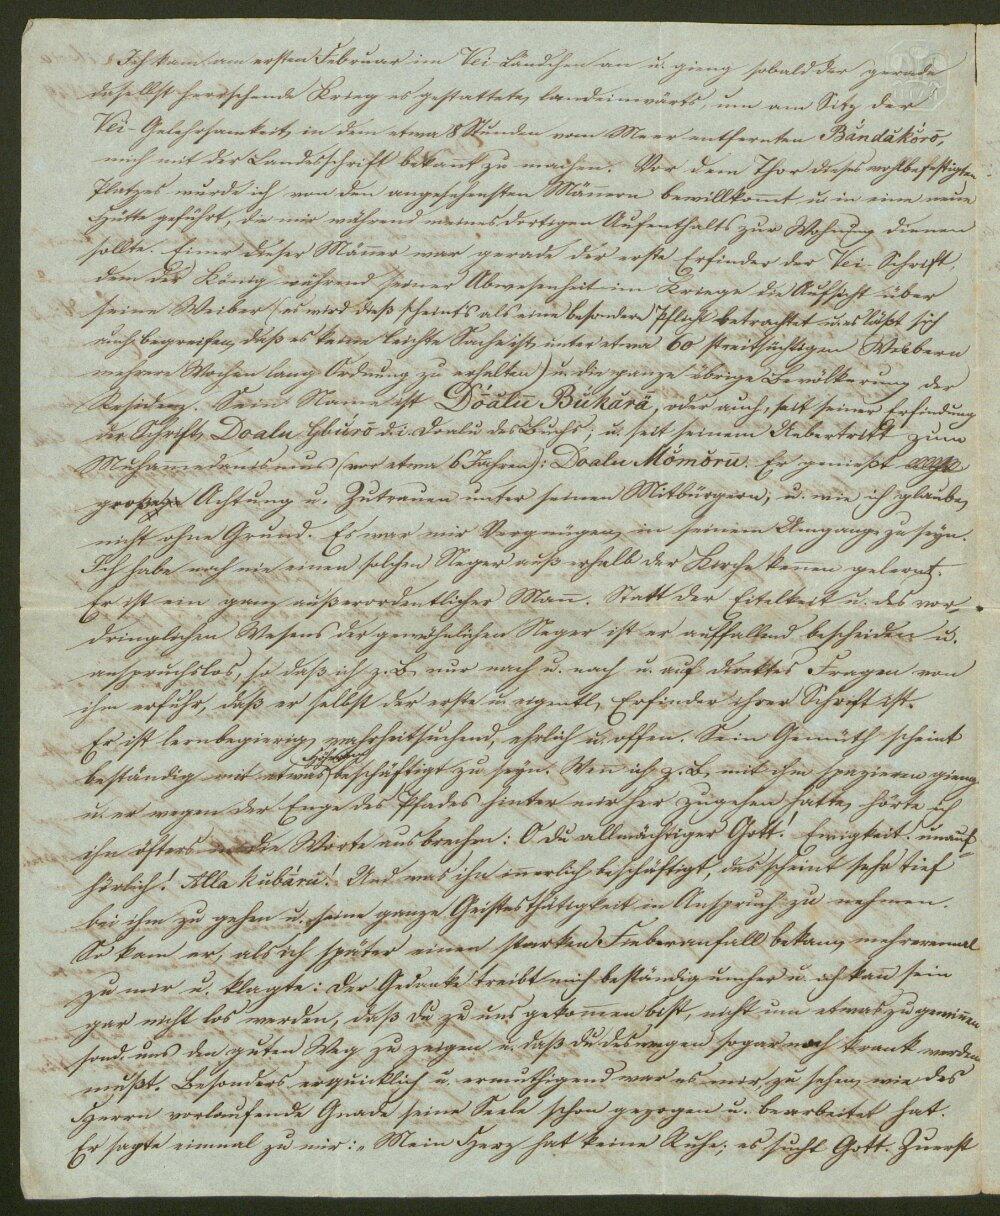 Ich kam am ersten Februar im Vei-Ländchen an u. gieng sobald der gerade
daselbst herrschende Krieg es gestattete, landeinwärts, um am Sitz der
Vei-Gelehrsamkeit, in dem etwa 8 Stunden vom Meer entfernten Bándākórō,
mich mit der Landesschrift bekannt zu machen. Vor dem Thor dieses wohlbefestigten
Platzes wurde ich von den angesehensten Männern bewillkommt u. in eine neue
Hütte geführt, die mir während meines dortigen Aufenthalts zur Wohnung dienen
sollte. Einer dieser Männer war gerade der erste Erfinder der Vei-Schrift,
dem der König während seiner Abwesenheit im Kriege die Aufsicht über
seine Weiber (es wird dieß scheints als eine besondere Pflicht betrachtet u. es läßt sich
auch begreifen, daß es keine leichte Sache ist, unter etwa 60 streitsüchtigen Weibern
mehrere Wochen lang Ordnung zu erhalten) u. die ganze übrige Bevölkerung der
Residenz. Sein Name ist Dōálū Būkárā, oder auch, seit seiner Erfindung
der Schrift, Doalu Gbúrō d.i. Doalu des Buchs; u. seit seinem Uebertritt zum
Muhamedanismus (vor etwa 6 Jahren): Doalu Mōmōrū. Er genießt
große Achtung u. Zutrauen unter seinen Mitbürgern, u. wie ich glaube,
nicht ohne Grund. Es war mir Vergnügen, in seinem Umgange zu seyn.
Ich habe noch nie einen solchen Neger außerhalb der Kirche kennen gelernt.
Er ist ein ganz außerordentlicher Mann. Statt der Eitelkeit u. des vor-
dringlichen Wesens der gewöhnlichen Neger ist er auffallend bescheiden u.
anspruchslos, so daß ich z. B. nur nach u. nach u. auf direktes Fragen von
ihm erfuhr, daß er selbst der erste u. eigentl. Erfinder ihrer Schrift ist.
Er ist lernbegierig, wahrheitsuchend, ehrlich u. offen. Sein Gemüth scheint
beständig mit etwas Höherem beschäftigt zu seyn. Wenn ich z. B. mit ihm spazieren gieng
u. er wegen der Enge des Pfades hinter mir her zugehen hatte, hörte ich
ihn öfters in die Worte ausbrechen: O du allmächtiger Gott! Ewigkeit! unauf-
hörlich! Alla kubárū! Und was ihn innerlich beschäftigt, das scheint sehr tief
bei ihm zu gehen u. seine ganze Geistesthätigkeit in Anspruch zu nehmen.
So kam er, als ich später einen starken Fieberanfall bekam, mehreremal
zu mir u. klagte: der Gedanke treibt mich beständig umher u. ich kann sein
gar nicht los werden, daß du zu uns gekommen bist, nicht um etwas zu gewinnen
sond. uns den guten Weg zu zeigen u. daß du deswegen sogar noch krank werden
mußt. Besonders erquicklich u. ermuthigend war es mir, zu sehen, wie des
Herrn vorlaufende Gnade seine Seele schon gezogen u. bearbeitet hat.
Er sagte einmal zu mir: „Mein Herz hat keine Ruhe; es sucht Gott. Zuerst